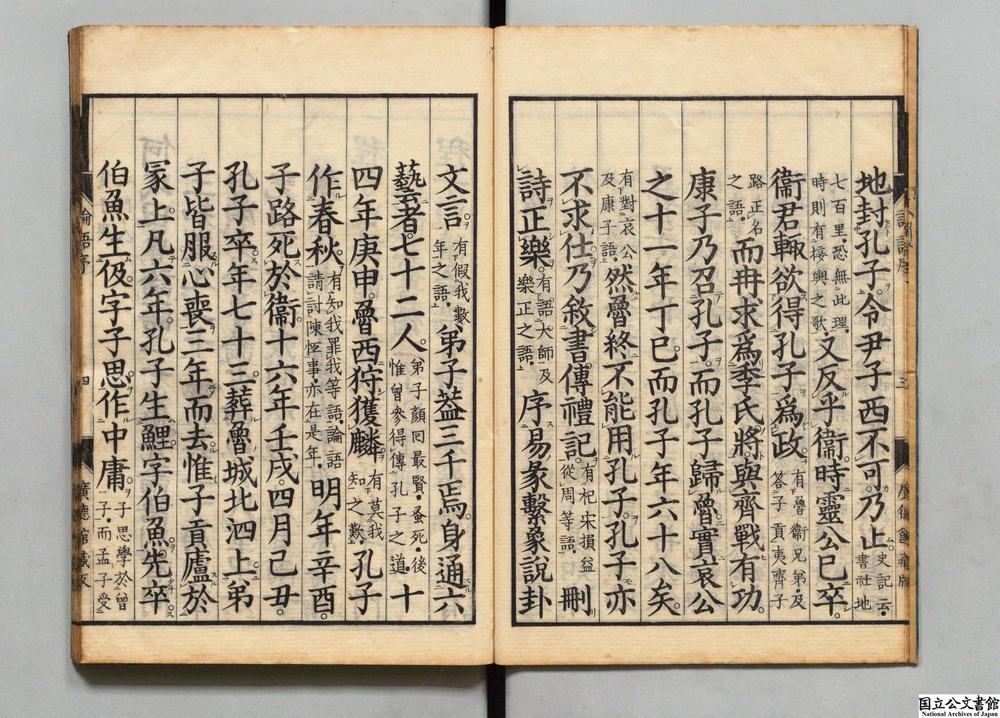 地封孔子。令尹子西不可乃止史記云書社地
七百里恐無此理。時則有接輿之歌又反乎衞時靈公已卒。
衞君輒欲得孔子爲政。有魯衞兄弟及答子貢夷齊子
路正名之語。而冉求爲季氏將與齊戰有功。
康子乃召孔子。而孔子歸魯實哀公
之十一年丁巳而孔子年六十八矣。
有對哀公及康子語然魯終不能用孔子。孔子亦
不求仕乃敘書傳禮記。有杞宋損益從周等語刪
詩正樂。有語大師及樂正之語序易彖繫象說卦
文言有假我數年之語弟子蓋三千焉。身通六
藝者七十二人。弟子顏回最賢。蚤死。後惟曾參得傳孔子之道十
四年庚申。魯西狩獲麟有莫我知之歎孔子
作春秋。有知我罪我等語論語請討陳恆事亦在是年明年辛酉。
子路死於衞十六年壬戌。四月己丑。
孔子卒。年七十三葬魯城北泗上弟
子皆服心喪三年而去惟子貢廬於
冢上。凡六年。孔子生鯉。字伯魚先卒
伯魚生伋字子思。作中庸。子思學於曾子。而孟子受
論語序
四
廣德館藏版
国立公文書館
National Archives of Japan